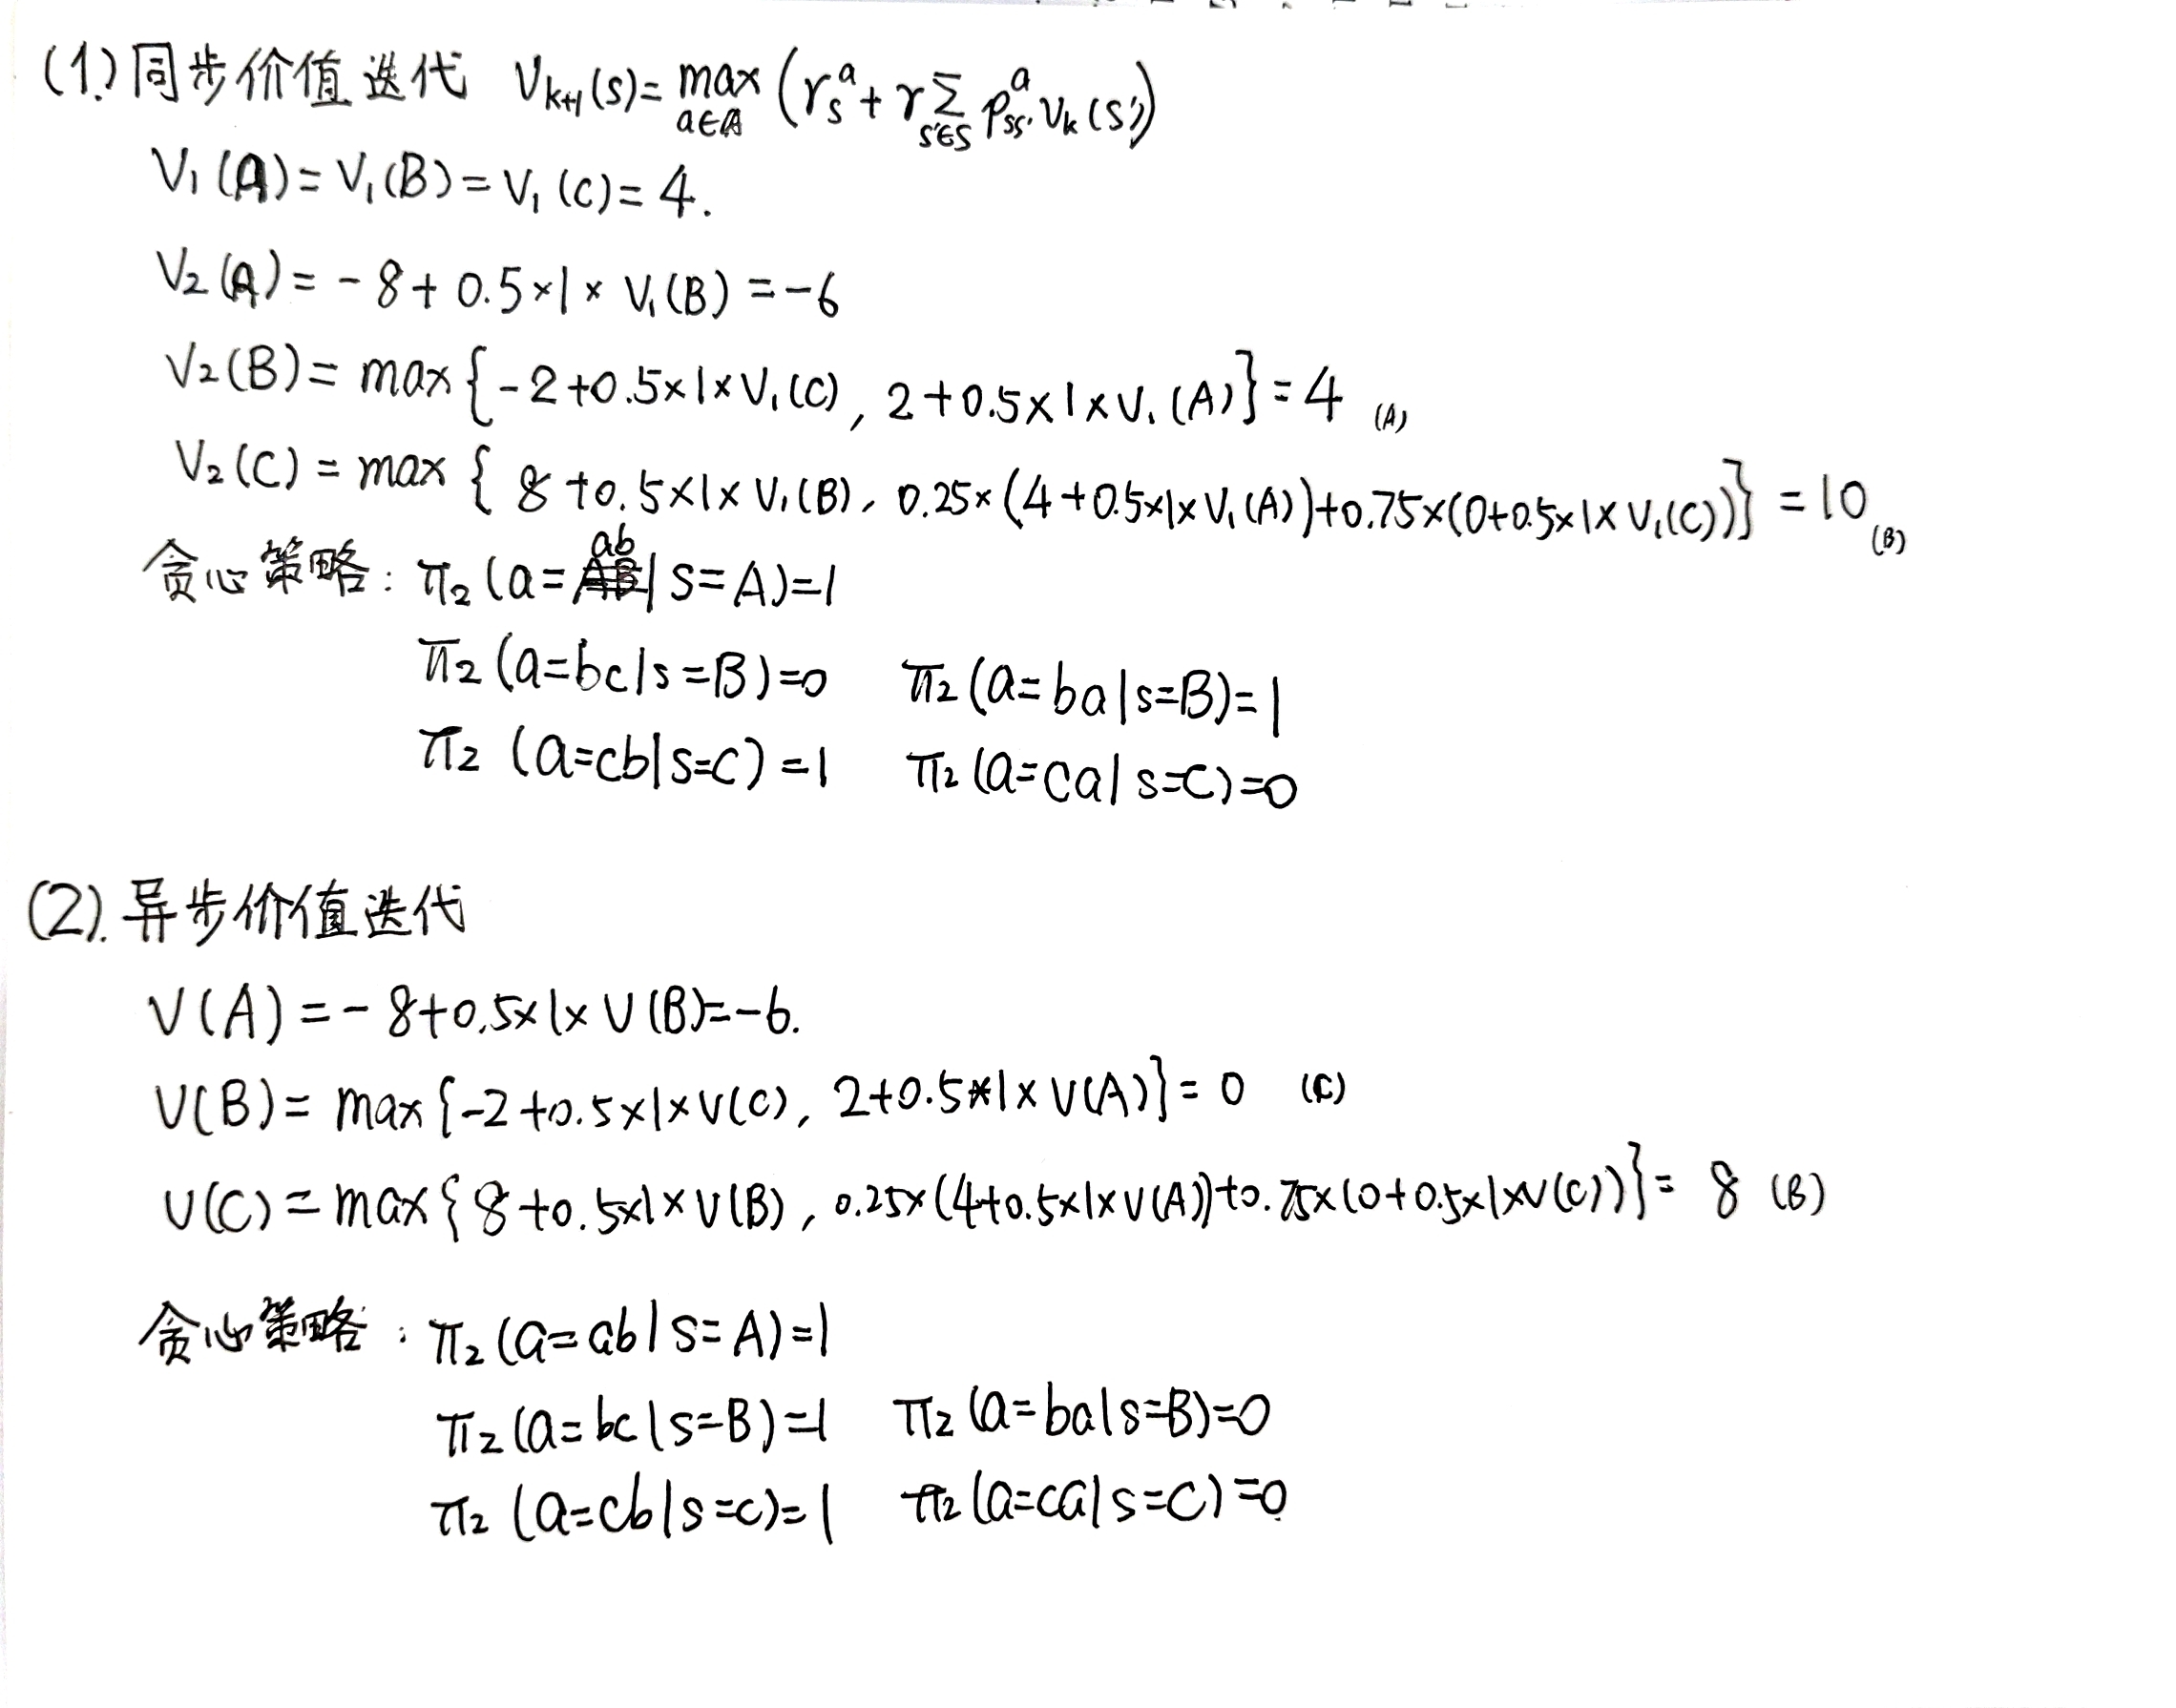 (1.) 同步价值迭代 Vk+1(s)=max a∈A (rsa + γ∑s'∈S pss'a Vk(s'))
V1(A)=V1(B)=V1(C)=4.
V2(A)=-8+0.5×1×V1(B)=-6
V2(B)=max{-2+0.5×1×V1(C), 2+0.5×1×V1(A)}=4 (A)
V2(C)=max{8+0.5×1×V1(B), 0.25×(4+0.5×1×V1(A))+0.75×(0+0.5×1×V1(C))}=10 (B)
贪心策略: π2(a=ab|s=A)=1
π2(a=bc|s=B)=0 π2(a=ba|s=B)=1
π2(a=cb|s=C)=1 π2(a=ca|s=C)=0
(2). 异步价值迭代
V(A)=-8+0.5×1×V(B)=-6.
V(B)=max{-2+0.5×1×V(C), 2+0.5×1×V(A)}=0 (C)
V(C)=max{8+0.5×1×V(B), 0.25×(4+0.5×1×V(A))+0.75×(0+0.5×1×V(C))}=8 (B)
贪心策略: π2(a=ab|s=A)=1
π2(a=bc|s=B)=1 π2(a=ba|s=B)=0
π2(a=cb|s=c)=1 π2(a=ca|s=C)=0